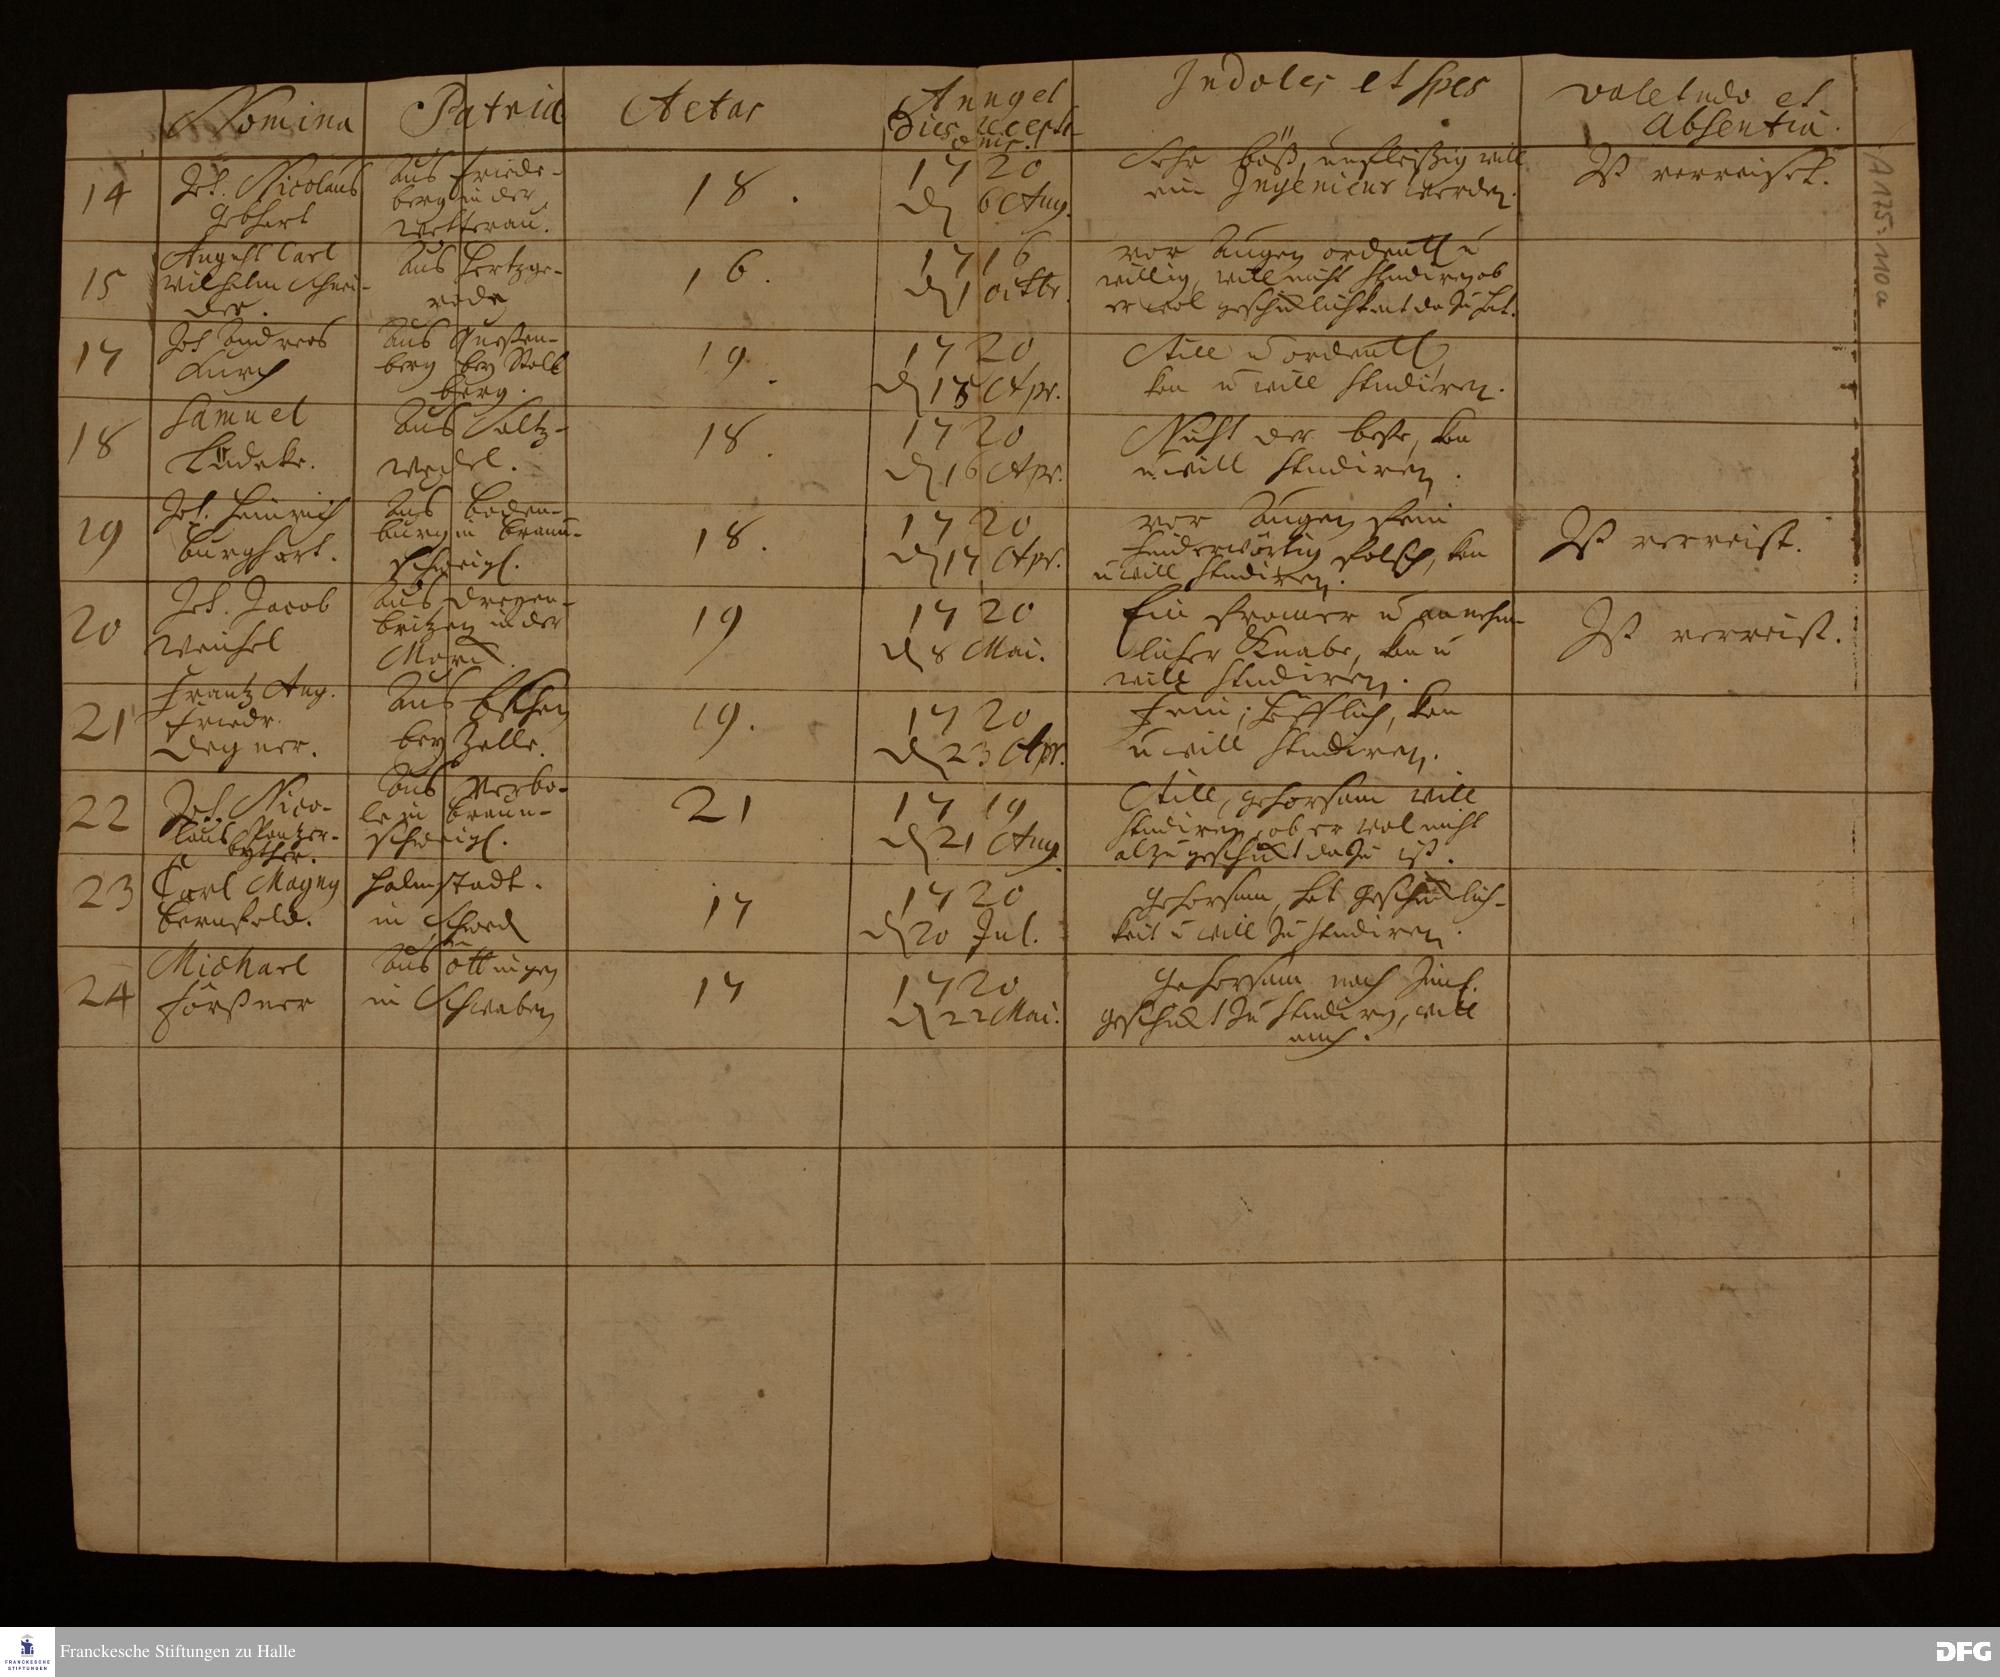 Nomina Patria Aetas Ann. et Dies recepti-onis. Indoles et spes Valetudo et Absentia.
14 Joh. Nicolaus Gebhart
Aus Friede-
berg in der
Wetterau.
18.
1720
d 6 Aug.
Sehr böß, unfleißig will
ein Ingenieur werden.
Ist verreiset.
15 August Carl
Wilhelm Schnei-
der.
Aus Hertzge-
rode
16.
1716
d 1 octbr.
vor Augen ordentl u
willig, will nicht studiren ob
er wol geschicklichkeit dazu hat.
17 Joh Andreas
Aus Questen-
berg bey Stoll
berg.
19.
1720
d 18 Apr.
Still u ordentl,
kan u will studiren.
18 Samuel
Lüdeke.
Aus Saltz-
wedel.
18.
1720
d 16 Apr.
Nicht der beste, kan
u will studiren.
19 Joh. Heinrich
Burghart.
Aus Boden-
burg in Braun-
schweigl.
18.
1720
d 17 Apr.
vor Augen fein
hinderwärtig falsch, kan
u will studiren.
Ist verreist.
20 Joh. Jacob
Weichel
Aus
britzen in der
Marck.
19
1720
d 8 Mai.
Ein fromer u annehm-
licher Knabe, kan u
will studiren.
Ist verreist.
21 Frantz Aug.
Friedr.
Degner.
Aus Eschen
bey Zelle.
19.
1720
d 23 Apr.
Fein, höfflich, kan
u will studiren.
22 Joh. Nico-
laus
Aus Verbo-
le in Braun-
schweigl.
21
1719
d 21 Aug.
Still, gehorsam will
studiren, ob er wol nicht
alzu geschickt dazu ist.
23 Carl Magny
Bernfeld.
Halmstadt.
in Schwed
17
1720
d 20 Jul.
gehorsam, hat geschicklich-
keit u will zu studiren.
24 Michael
Forßner
Aus Öttingen
in Schwaben
17
1720
d 22 Mai.
gehorsam noch
geschickt zu studiren, will
auch.
A 175:110a
FRANCKESCHE
STIFTUNGEN
Franckesche Stiftungen zu Halle
DFG